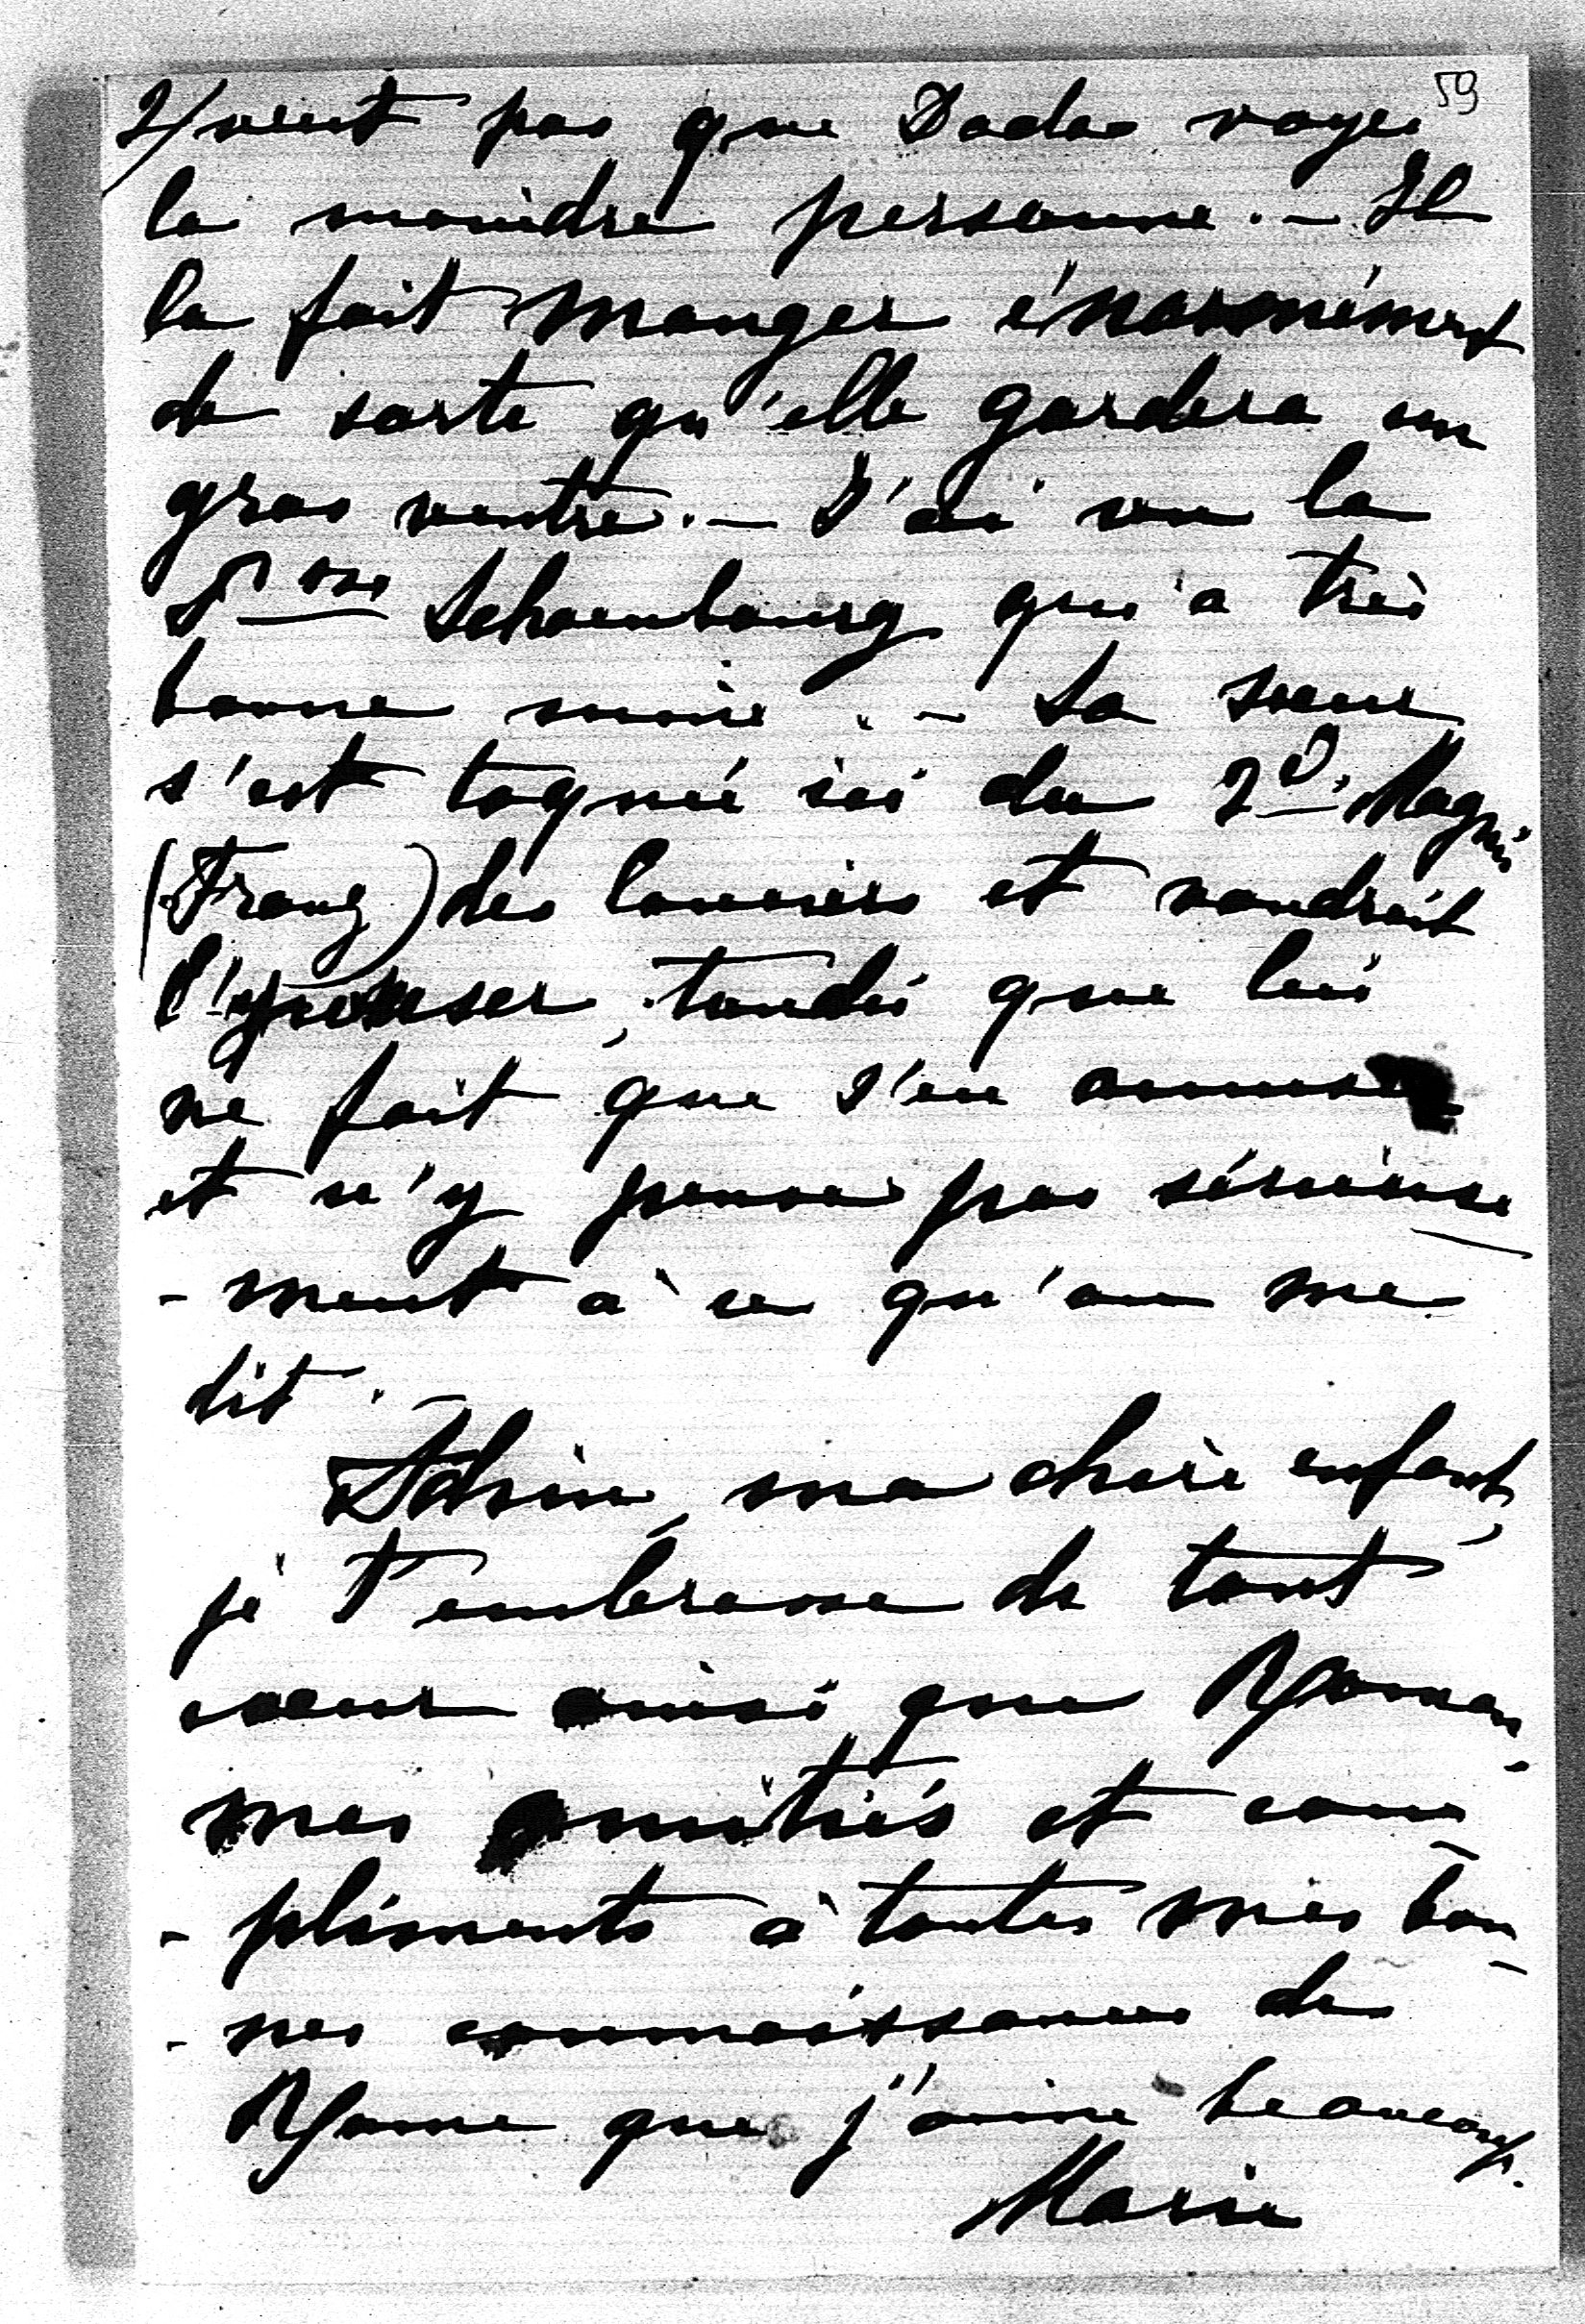 59
2/ veut pas que Dadas voye
la moindre personne. – Il
la fait manger énormément
de sorte qu'elle gardera un
gros ventre. – J'ai vu la
Psse Schoenbourg qui a très
bonne mine. – Sa sœur
s'est toquée ici du 2d. Magnis
(Franz) des lanciers et voudrait
l'épouser, tandis que lui
ne fait que s'en amuser
et n'y pense pas sérieuse
- ment à ce qu'on me
dit.
Adieu, ma chère enfant,
je t'embrasse de tout
cœur ainsi que
mes amitiés et com-
- pliments à toutes mes bon-
- nes connaissances de
que j'aime beaucoup.
Marie